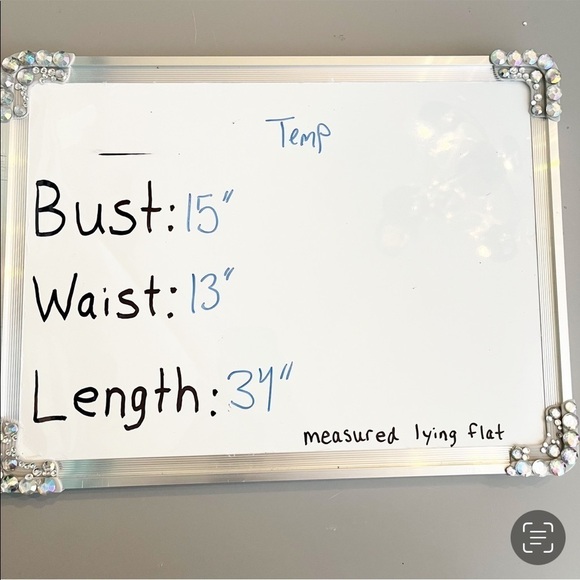 Temp
Bust: 15"
Waist: 13"
Length: 34"
measured lying flat